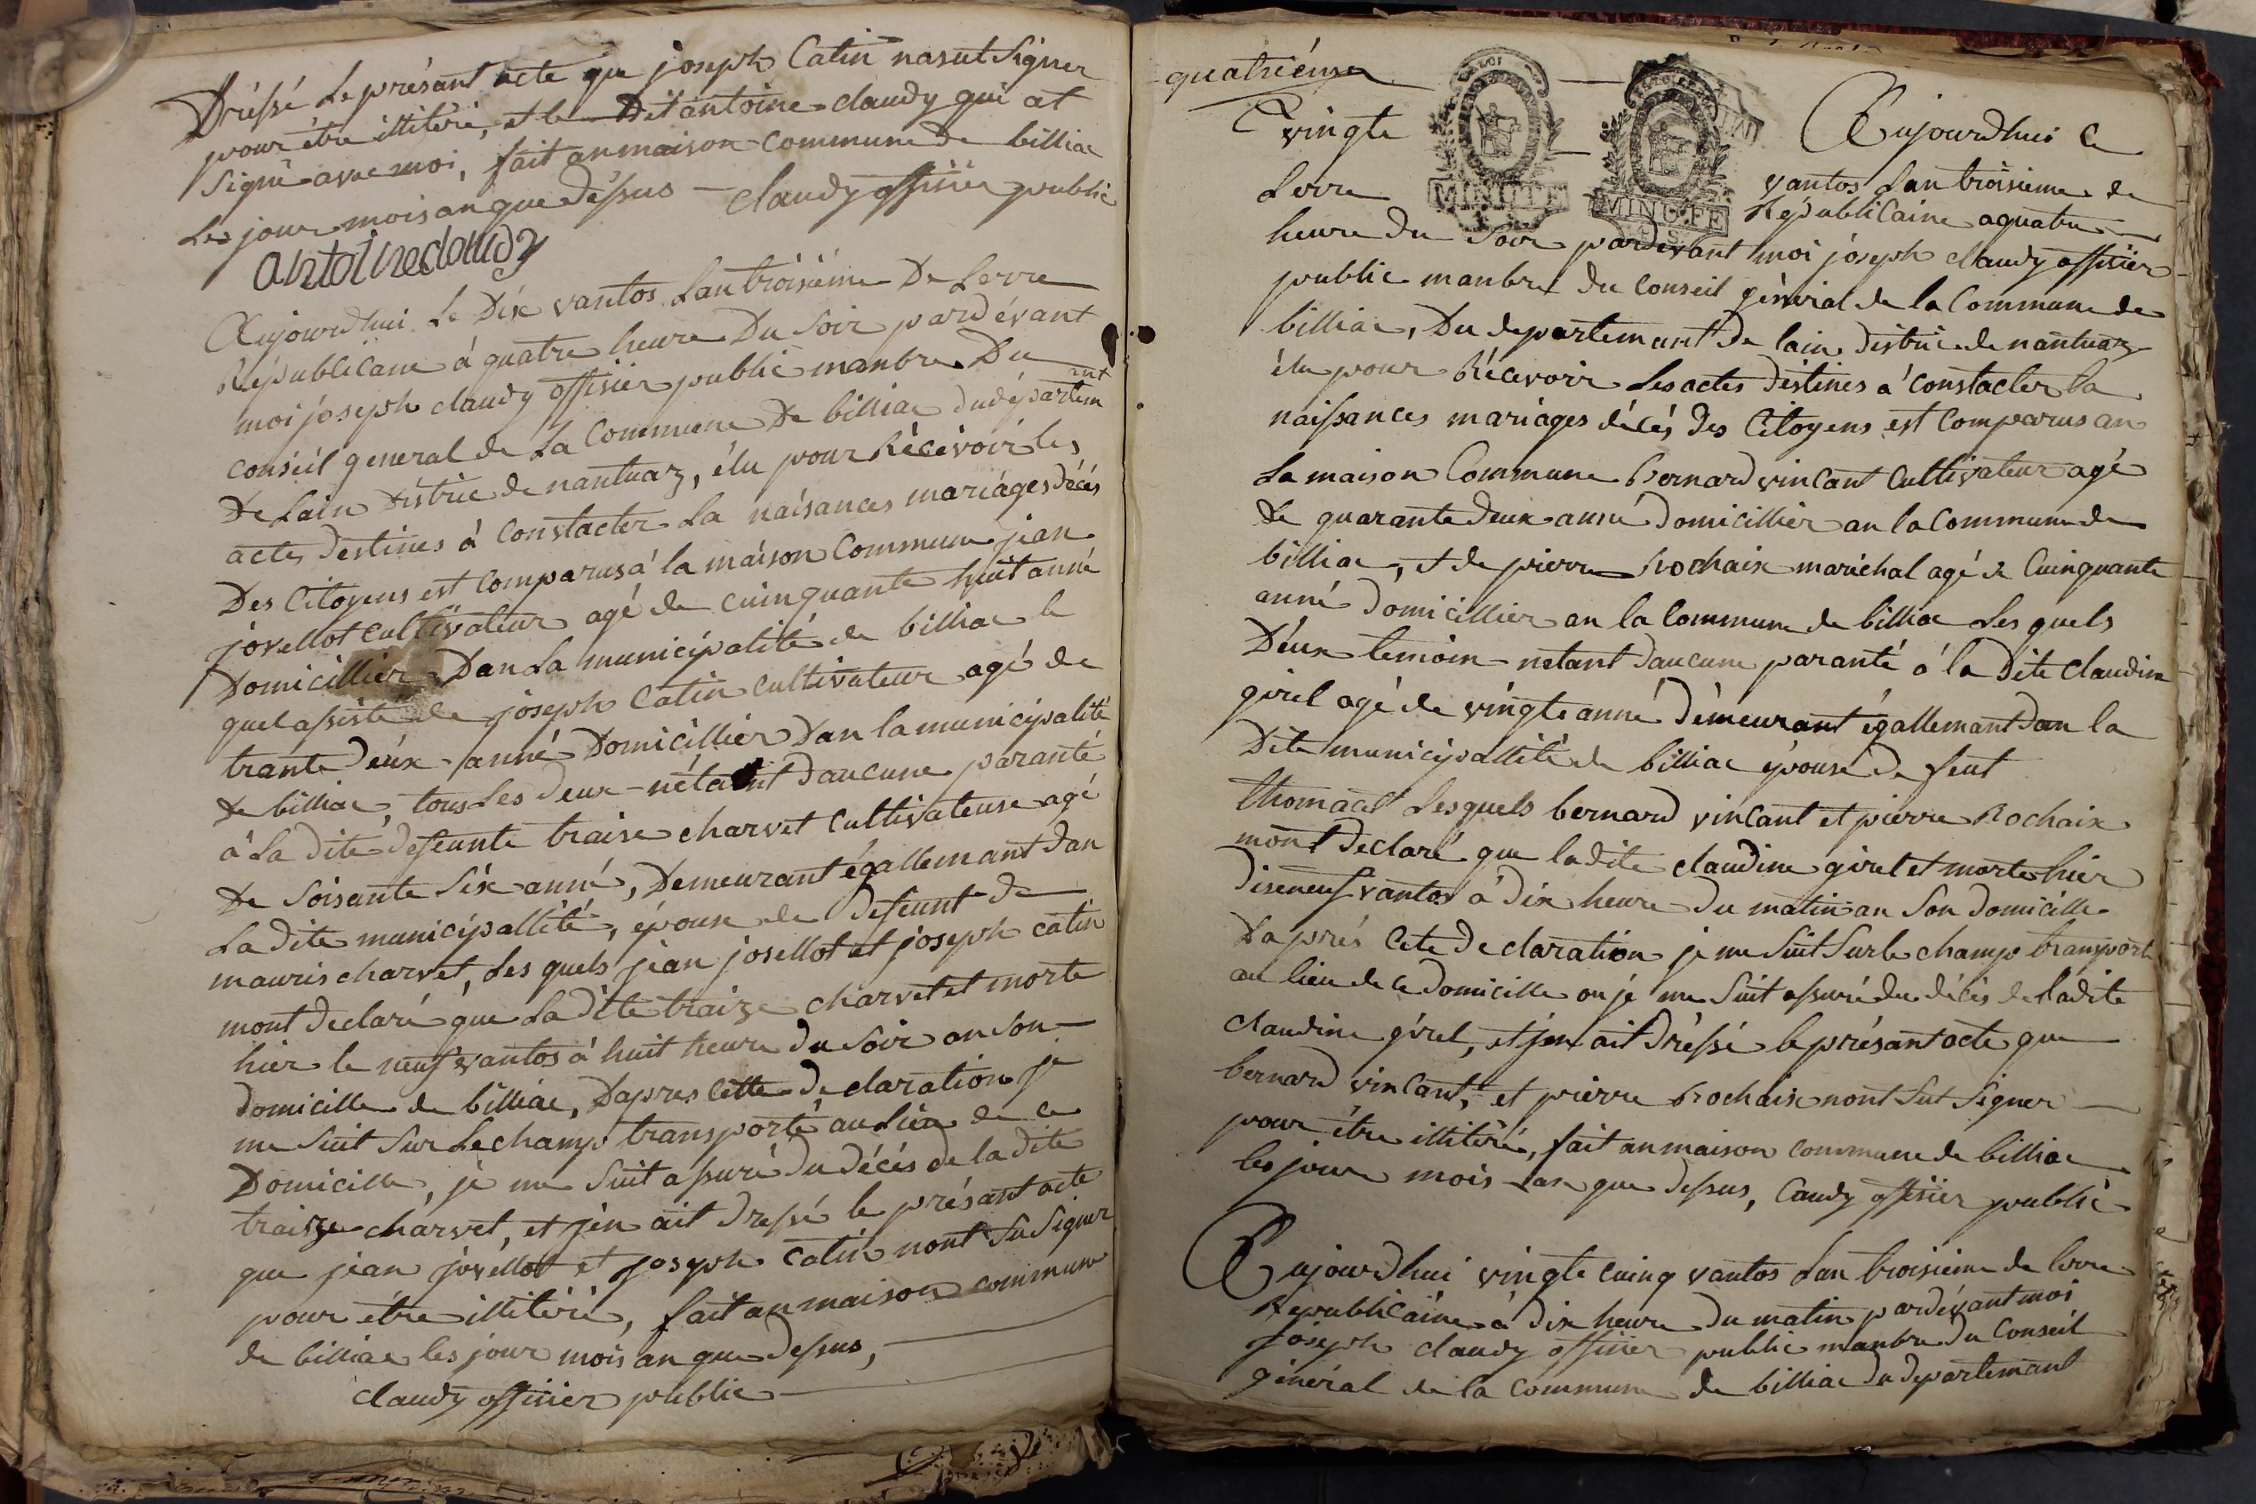 Dréssé le présant acte que joseph Catin nasut Signer
pour être illitéré, et le Dit antoine claudy qui at
Signé avec moi, fait an maison Commune de billiac
Les jour mois an que déssus — claudy offisier public
antoine claudy
Aujourdhui le Dix vantos Lan troisième De Lerre
Républicane à quatre heure Du Soir pardévant
moi joseph claudy offisier public manbre Du
conseil general de La Commune De billiac dudépartem ant
De Lain Distric de nantuaz, élu pour Récévoir les
actes destines à Constacter La naisances mariáges décés
Des Citoyens est Comparus à la maison Commune jean
jovellot Cultivateur agé de cuinquante huit anné
Domicillier Dan La municipalité de billiac le
quel assisté de joseph Catin cultivateur agé de
trante Deux anné Domicillier Dan la municipalité
de billiac, tous Les deux nétant daucune paranté
à La dite defeunte traise charvet Cultivateuse agé
De Soisante Six anné, Demeurant égallemant dan
La dite municipallité, épouse de defeunt de
mauris charvet, Les quels jean josellot et joseph catin
mont déclaré que La dite traize charvet et morte
hier le neuf vantos à huit heure du Soir an Son
domicille de billiac, Dapres Cette déclaration je
me Suit Sur Le champ transporté au Lieu de ce
Domicille, je me Suit assuré du décés de la dite
traize charvet, et jén ait dressé le présant acte
que jean jovellot et joseph Catin nont Su Signer
pour être illitéré, fait an maison commune
de billiac les jour mois an que dessus,
claudy offisier public
quatriéme
MINUTE
MINUTE
Aujourdhui le
vingte vantos Lan troisieme de
Lerre Républicaine a quatre
heure du Soir pardevant moi joseph claudy offisier
public manbre du Conseil général de la Commune de
billiac, Du departemant de lain distric de nantuaz
élu pour Récevoir Les actes destines à constacter la
naissances mariáges décés des Citoyens est Comparus an
La maison Commune bernard vincant Cultivateur agé
de quarante deux anné domicillier an la Commune de
billiac, et de pierre Rochaix maréchal agé de Cuinquante
anné domicillier an la Commune de billiac Les quels
Déux temoin nétant daucune paranté à la dite claudine
girel agé de vingte anné démeurant égallemant dan la
dite municipallité de billiac épouse de feut
thomas Lesquels bernard vincant et pierre Rochaix
mont declaré que ladite claudine girel et morte hier
diseneuf vantos à dix heure du matin an Son domicille
Daprés Cete declaration je me Suit Sur le champ transporté
au lieu de ce domicille ou jé me Suit assuré du décés de ladite
claudine girel, et jén ait dréssé le présant acte que
bernard vincant, et pierre Rochaix nont Sut Signer
pour être illitéré, fait an maison commune de billiac
les jour mois an que dessus, Caudy offisier public
Aujourdhui vingte cuinq vantos Lan troisieme de lerre
Républicaine à dix heure du matin pardévant moi
joseph claudy offisier public manbre du Conseil
général de la Commune de billiac du departemant